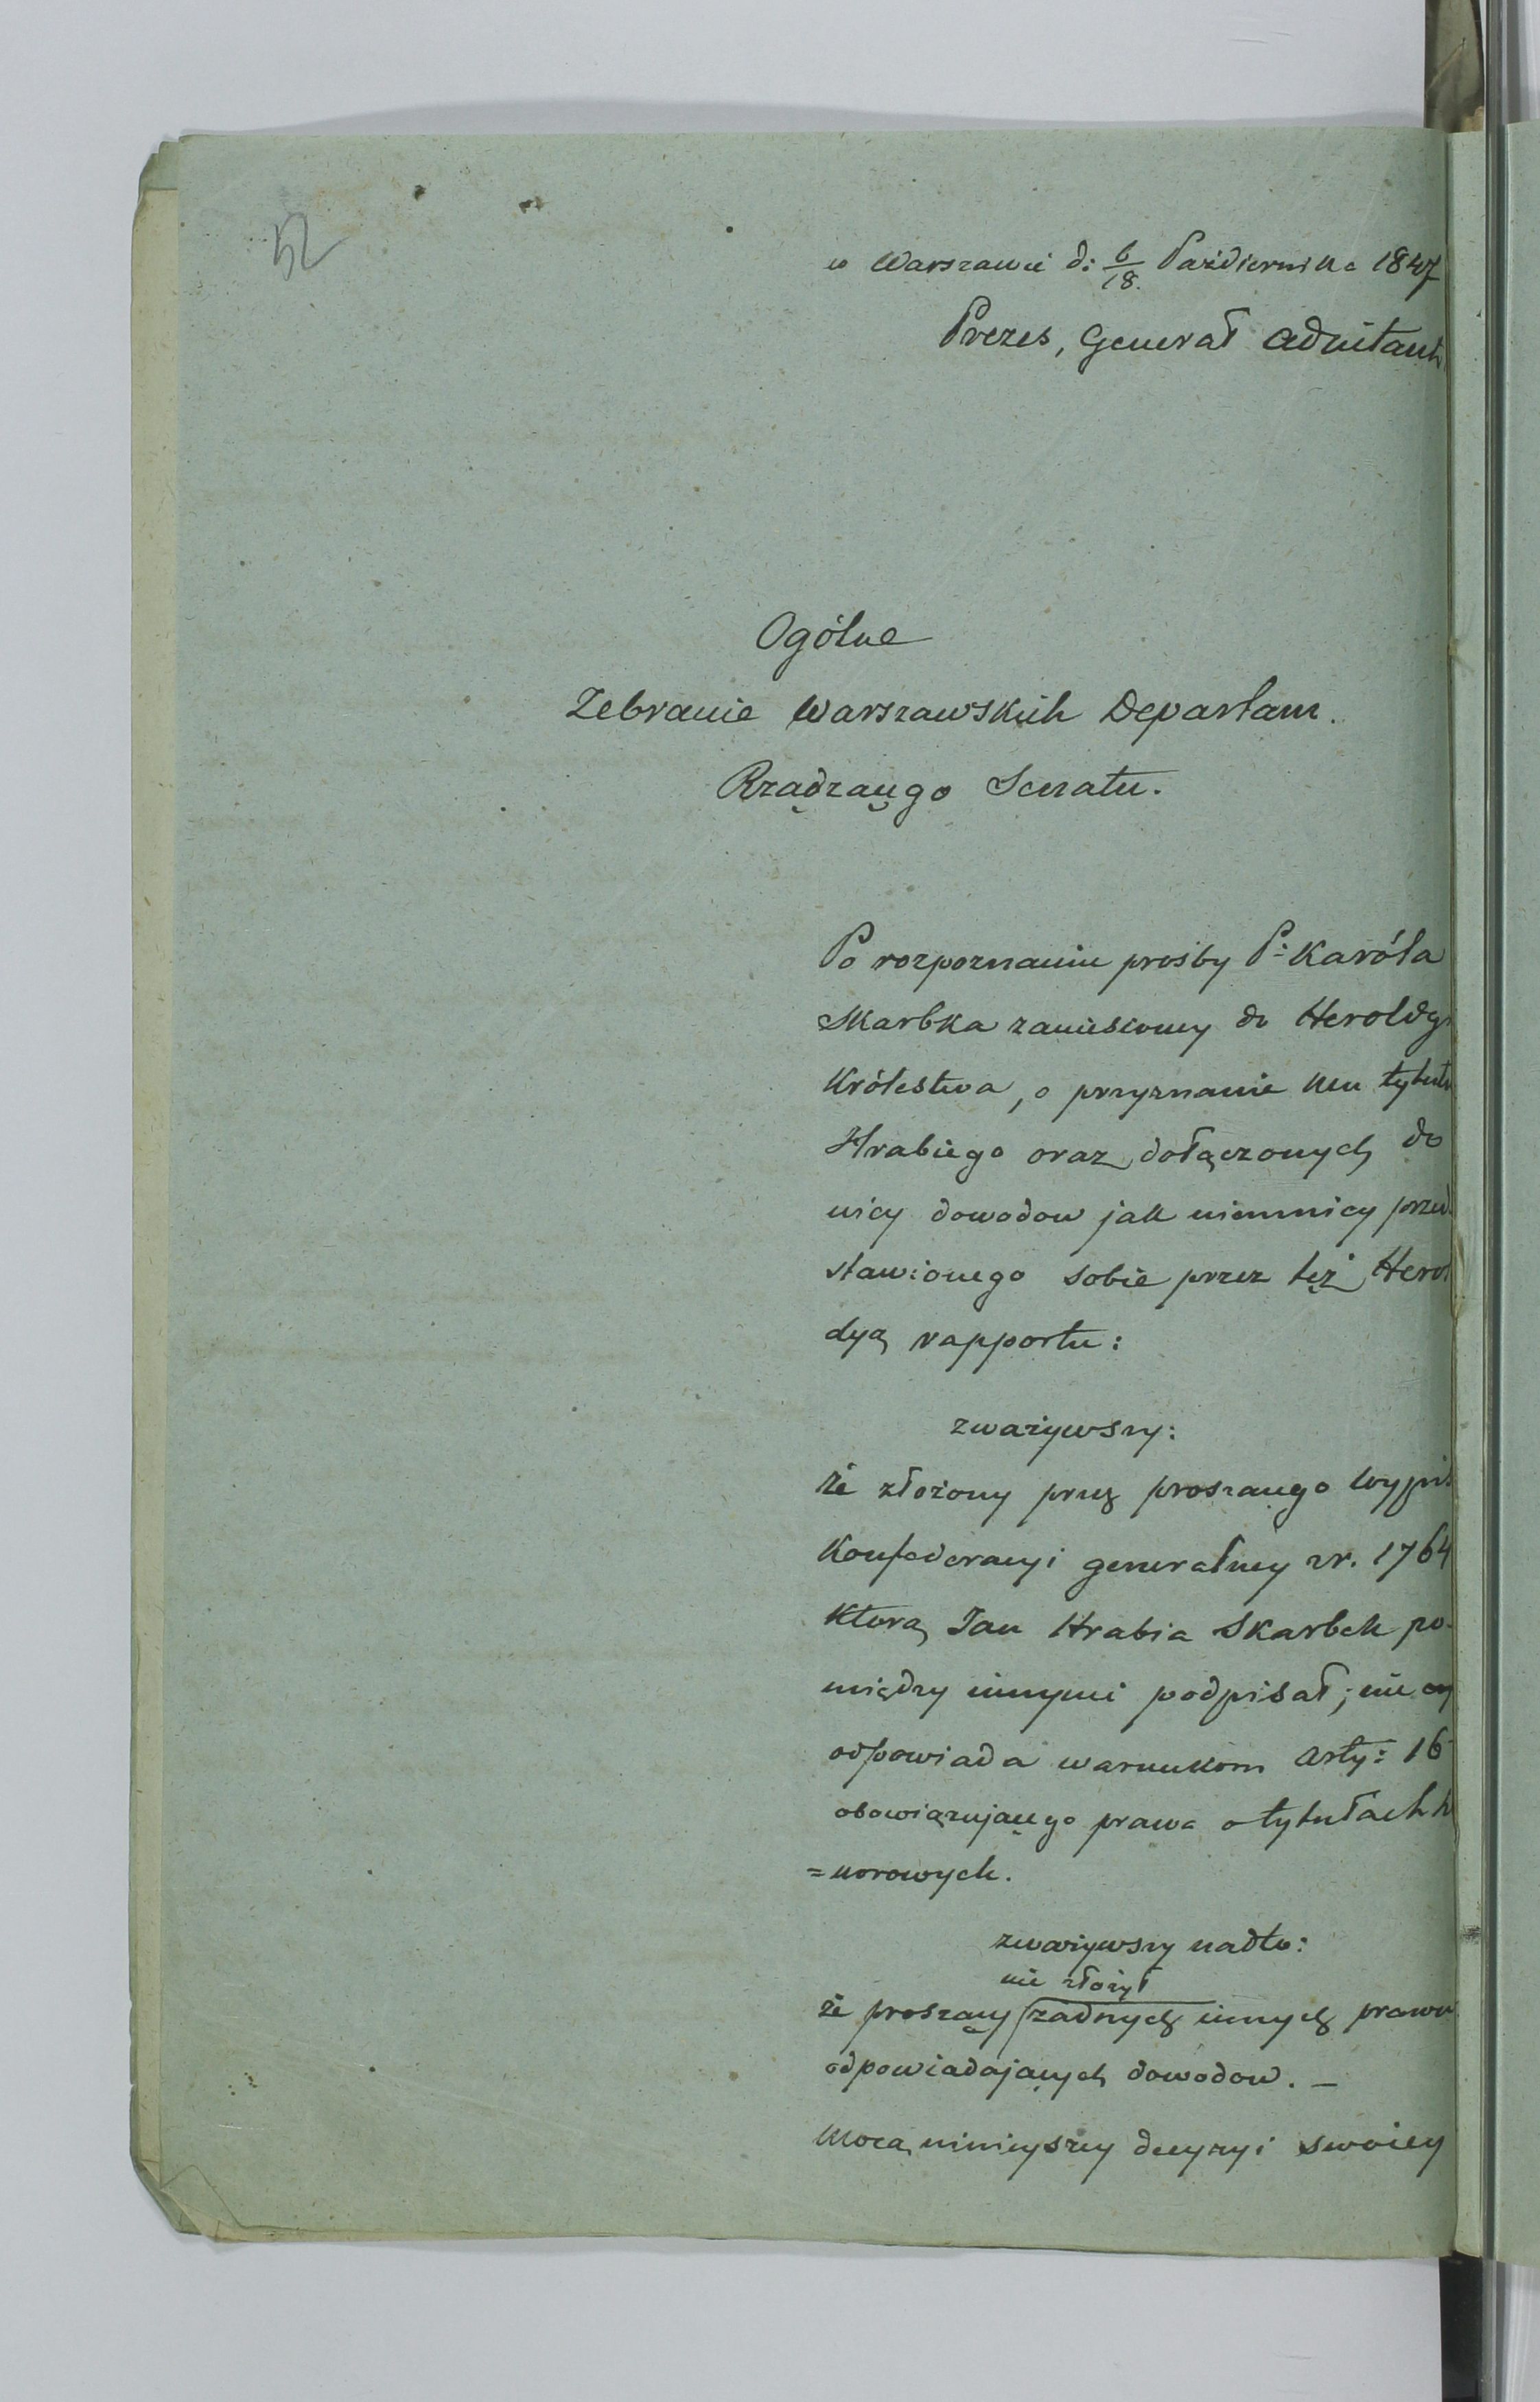 52
w Warszawie d: 6/18. Października 1847
Prezes, Generał Adiutant
Ogólne
Zebranie Warszawskich Departam.
Rządzącego Senatu.
Po rozpoznaniu prośby P: Karóla
Skarbka zaniesioney do Heroldyi
Królestwa, o przyznanie mu tytułu
Hrabiego oraz dołączonych do
niey dowodow jak niemniey przed
stawionego sobie przez też Herol
dyą rapportu:
zważywszy:
że złożony przez proszącego wypis
Konfederacyi generalney z r. 1764
którą Jan Hrabia Skarbek po-
między innymi podpisał; nie
odpowiada warunkom Arty: 16
obowiązującego prawa o tytułach ho
=norowych.
zważywszy nadto:
nie złożył
że proszący żadnych innych prawu
odpowiadających dowodow. –
Mocą ninieyszey decyzyi swoiey